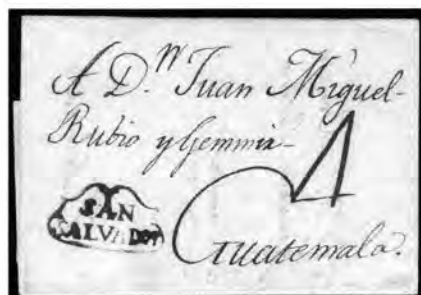 A D.ⁿ Juan Miguel-
Rubio y Gemmir-
4
SAN
SALVADOR
Guatemala.